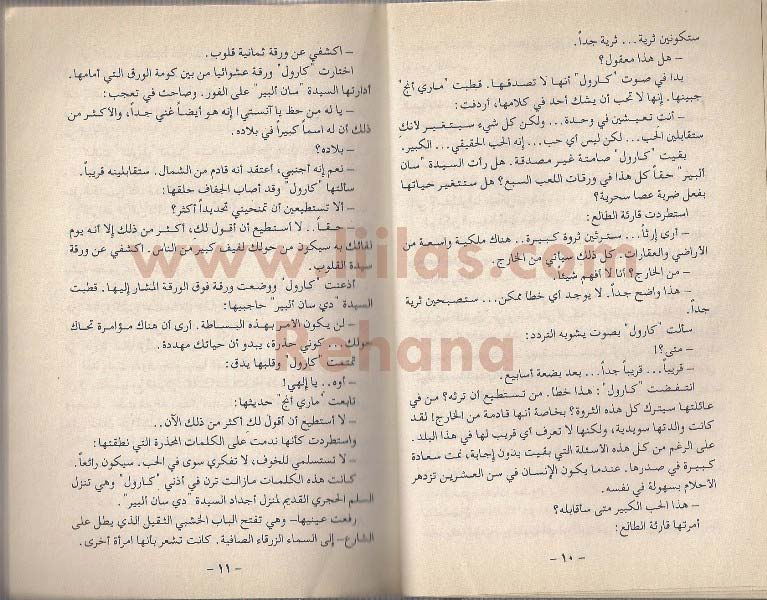 ستكونين ثرية... ثرية جداً.
– هل هذا معقول؟
بدا في صوت "كارول" أنها لا تصدقها. قطبت "ماري أنج"
جبينها. إنها لا تحب أن يشك أحد في كلامها، أردفت:
– أنت تعيشين في وحدة... ولكن كل شيء سيتغير لأنك
ستقابلين الحب... لكن ليس أي حب... إنه الحب الحقيقي... الكبير.
بقيت "كارول" صامتة غير مصدقة. هل رأت السيدة "سان
ألبير" حقاً كل هذا في ورقات اللعب السبع؟ هل ستتغير حياتها
بفعل ضربة عصا سحرية؟
استطردت قارئة الطالع:
– أرى إرثاً... سترثين ثروة كبيرة.. هناك ملكية واسعة من
الأراضي والعقارات. كل ذلك سيأتي من الخارج.
– من الخارج؟ أنا لا أفهم شيئاً.
– هذا واضح جداً. لا يوجد أي خطأ ممكن... ستصبحين ثرية
جداً.
سألت "كارول" بصوت يشوبه التردد:
– متى؟!
– قريباً... قريباً جداً... بعد بضعة أسابيع.
انتفضت "كارول": هذا خطأ. من تستطيع أن ترثه؟ من في
عائلتها سيترك كل هذه الثروة؟ بخاصة أنها قادمة من الخارج! لقد
كانت والدتها سويدية، ولكنها لا تعرف أي قريب لها في هذا البلد.
على الرغم من كل هذه الاسئلة التي بقيت بدون إجابة، نمت سعادة
كبيرة في صدرها. عندما يكون الإنسان في سن العشرين تزدهر
الأحلام بسهولة في نفسه.
– هذا الحب الكبير متى سأقابله؟
أمرتها قارئة الطالع:
– ١٠ –
– اكشفي عن ورقة ثمانية قلوب.
اختارت "كارول" ورقة عشوائيا من بين كومة الورق التي أمامها.
أدارتها السيدة "سان ألبير" على الفور. وصاحت في تعجب:
– يا له من حظ يا آنستي! إنه هو أيضاً غني جداً، والأكثر من
ذلك أن له اسماً كبيراً في بلاده.
– بلاده؟
– نعم إنه أجنبي، أعتقد أنه قادم من الشمال. ستقابلينه قريباً.
سألتها "كارول" وقد أصاب الجفاف حلقها:
– ألا تستطيعين أن تمنحيني تحديداً أكثر؟
– حقاً.. لا أستطيع أن أقول لك، أكثر من ذلك إلا أنه يوم
لقائك به سيكون من حولك لفيف كبير من الناس. اكشفي عن ورقة
سيدة القلوب.
أذعنت "كارول" ووضعت ورقة فوق الورقة المشار إليها. قطبت
السيدة "دي سان ألبير" حاجبيها:
– لن يكون الأمر بهذه البساطة. أرى أن هناك مؤامرة تحاك
حولك... كوني حذرة، يبدو أن حياتك مهددة.
تمتمت "كارول" وقلبها يدق:
– أوه.. يا إلهي!
تابعت "ماري أنج" حديثها:
– لا أستطيع أن أقول لك أكثر من ذلك الآن..
واستطردت كأنها ندمت على الكلمات المحذرة التي نطقتها:
– لا تستسلمي للخوف، لا تفكري سوى في الحب. سيكون رائعاً.
كانت هذه الكلمات مازالت ترن في أذني "كارول" وهي تنزل
السلم الحجري القديم لمنزل أجداد السيدة "دي سان ألبير".
رفعت عينيها– وهي تفتح الباب الخشبي الثقيل الذي يطل على
الشارع– إلى السماء الزرقاء الصافية. كانت تشعر بأنها امرأة أخرى.
– ١١ –
www.liilas.com
Rehana